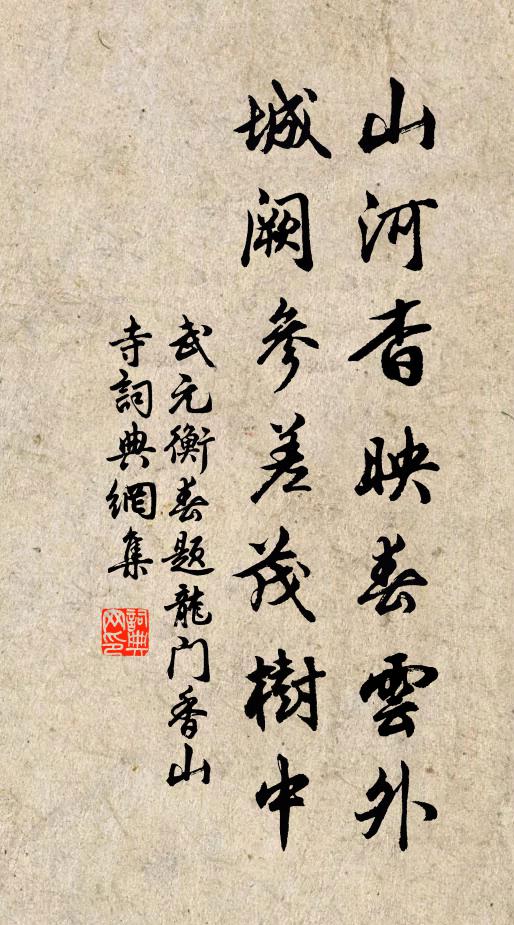 山河杳映春雲外
城闕參差茂樹中
武元衡春题龍门香山
寺詞典網集
詞典网印